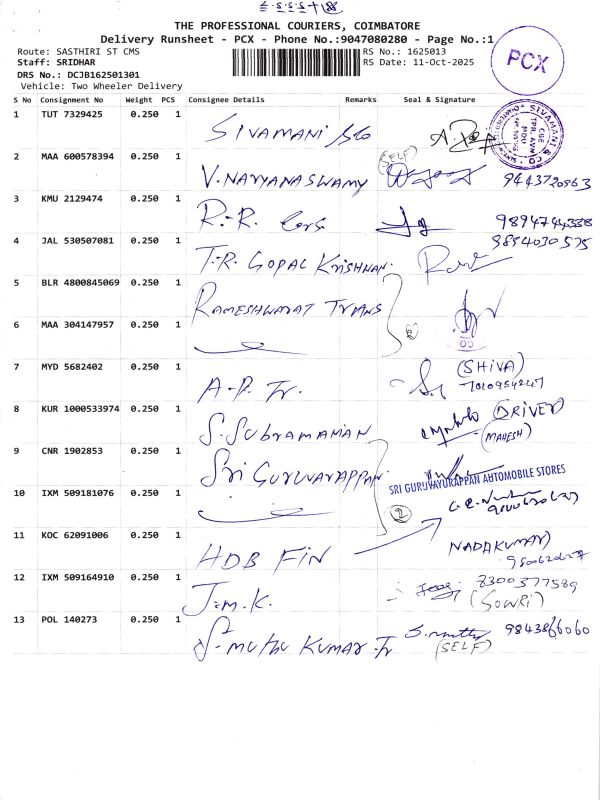 THE PROFESSIONAL COURIERS, COIMBATORE
Delivery Runsheet - PCX - Phone No.:9047080280 - Page No.:1
Route: SASTHIRI ST CMS
RS No.: 1625013
Staff: SRIDHAR
RS Date: 11-Oct-2025
DRS No.: DCJB162501301
Vehicle: Two Wheeler Delivery
PCX
S No Consignment No Weight PCS Consignee Details Remarks Seal & Signature
1 TUT 7329425 0.250 1 SIVAMANI &co
SIVAMANI & CO
2 MAA 600578394 0.250 1 V.NARYANASWAMY (SELF) 9443720963
3 KMU 2129474 0.250 1 R.R. Cors 9894744338
9894030575
4 JAL 530507081 0.250 1 T.R. GOPAL KRISHNAN
5 BLR 4800845069 0.250 1 RAMESHWARAT TRANS
6 MAA 304147957 0.250 1
7 MYD 5682402 0.250 1 A-P. Tr. (SHIVA)
8 KUR 1000533974 0.250 1 S.SUBRAMANIAN (DRIVER)
(MAHESH)
9 CNR 1902853 0.250 1 SRI GURUVARAPPAN
SRI GURUVAYURAPPAN AUTOMOBILE STORES
10 IXM 509181076 0.250 1 2
11 KOC 62091006 0.250 1 HDB FIN
12 IXM 509164910 0.250 1 J.m.K. 8300377589
(SOWRI)
13 POL 140273 0.250 1 S-MUTHU KUMAR Tr 9843866060
(SELF)